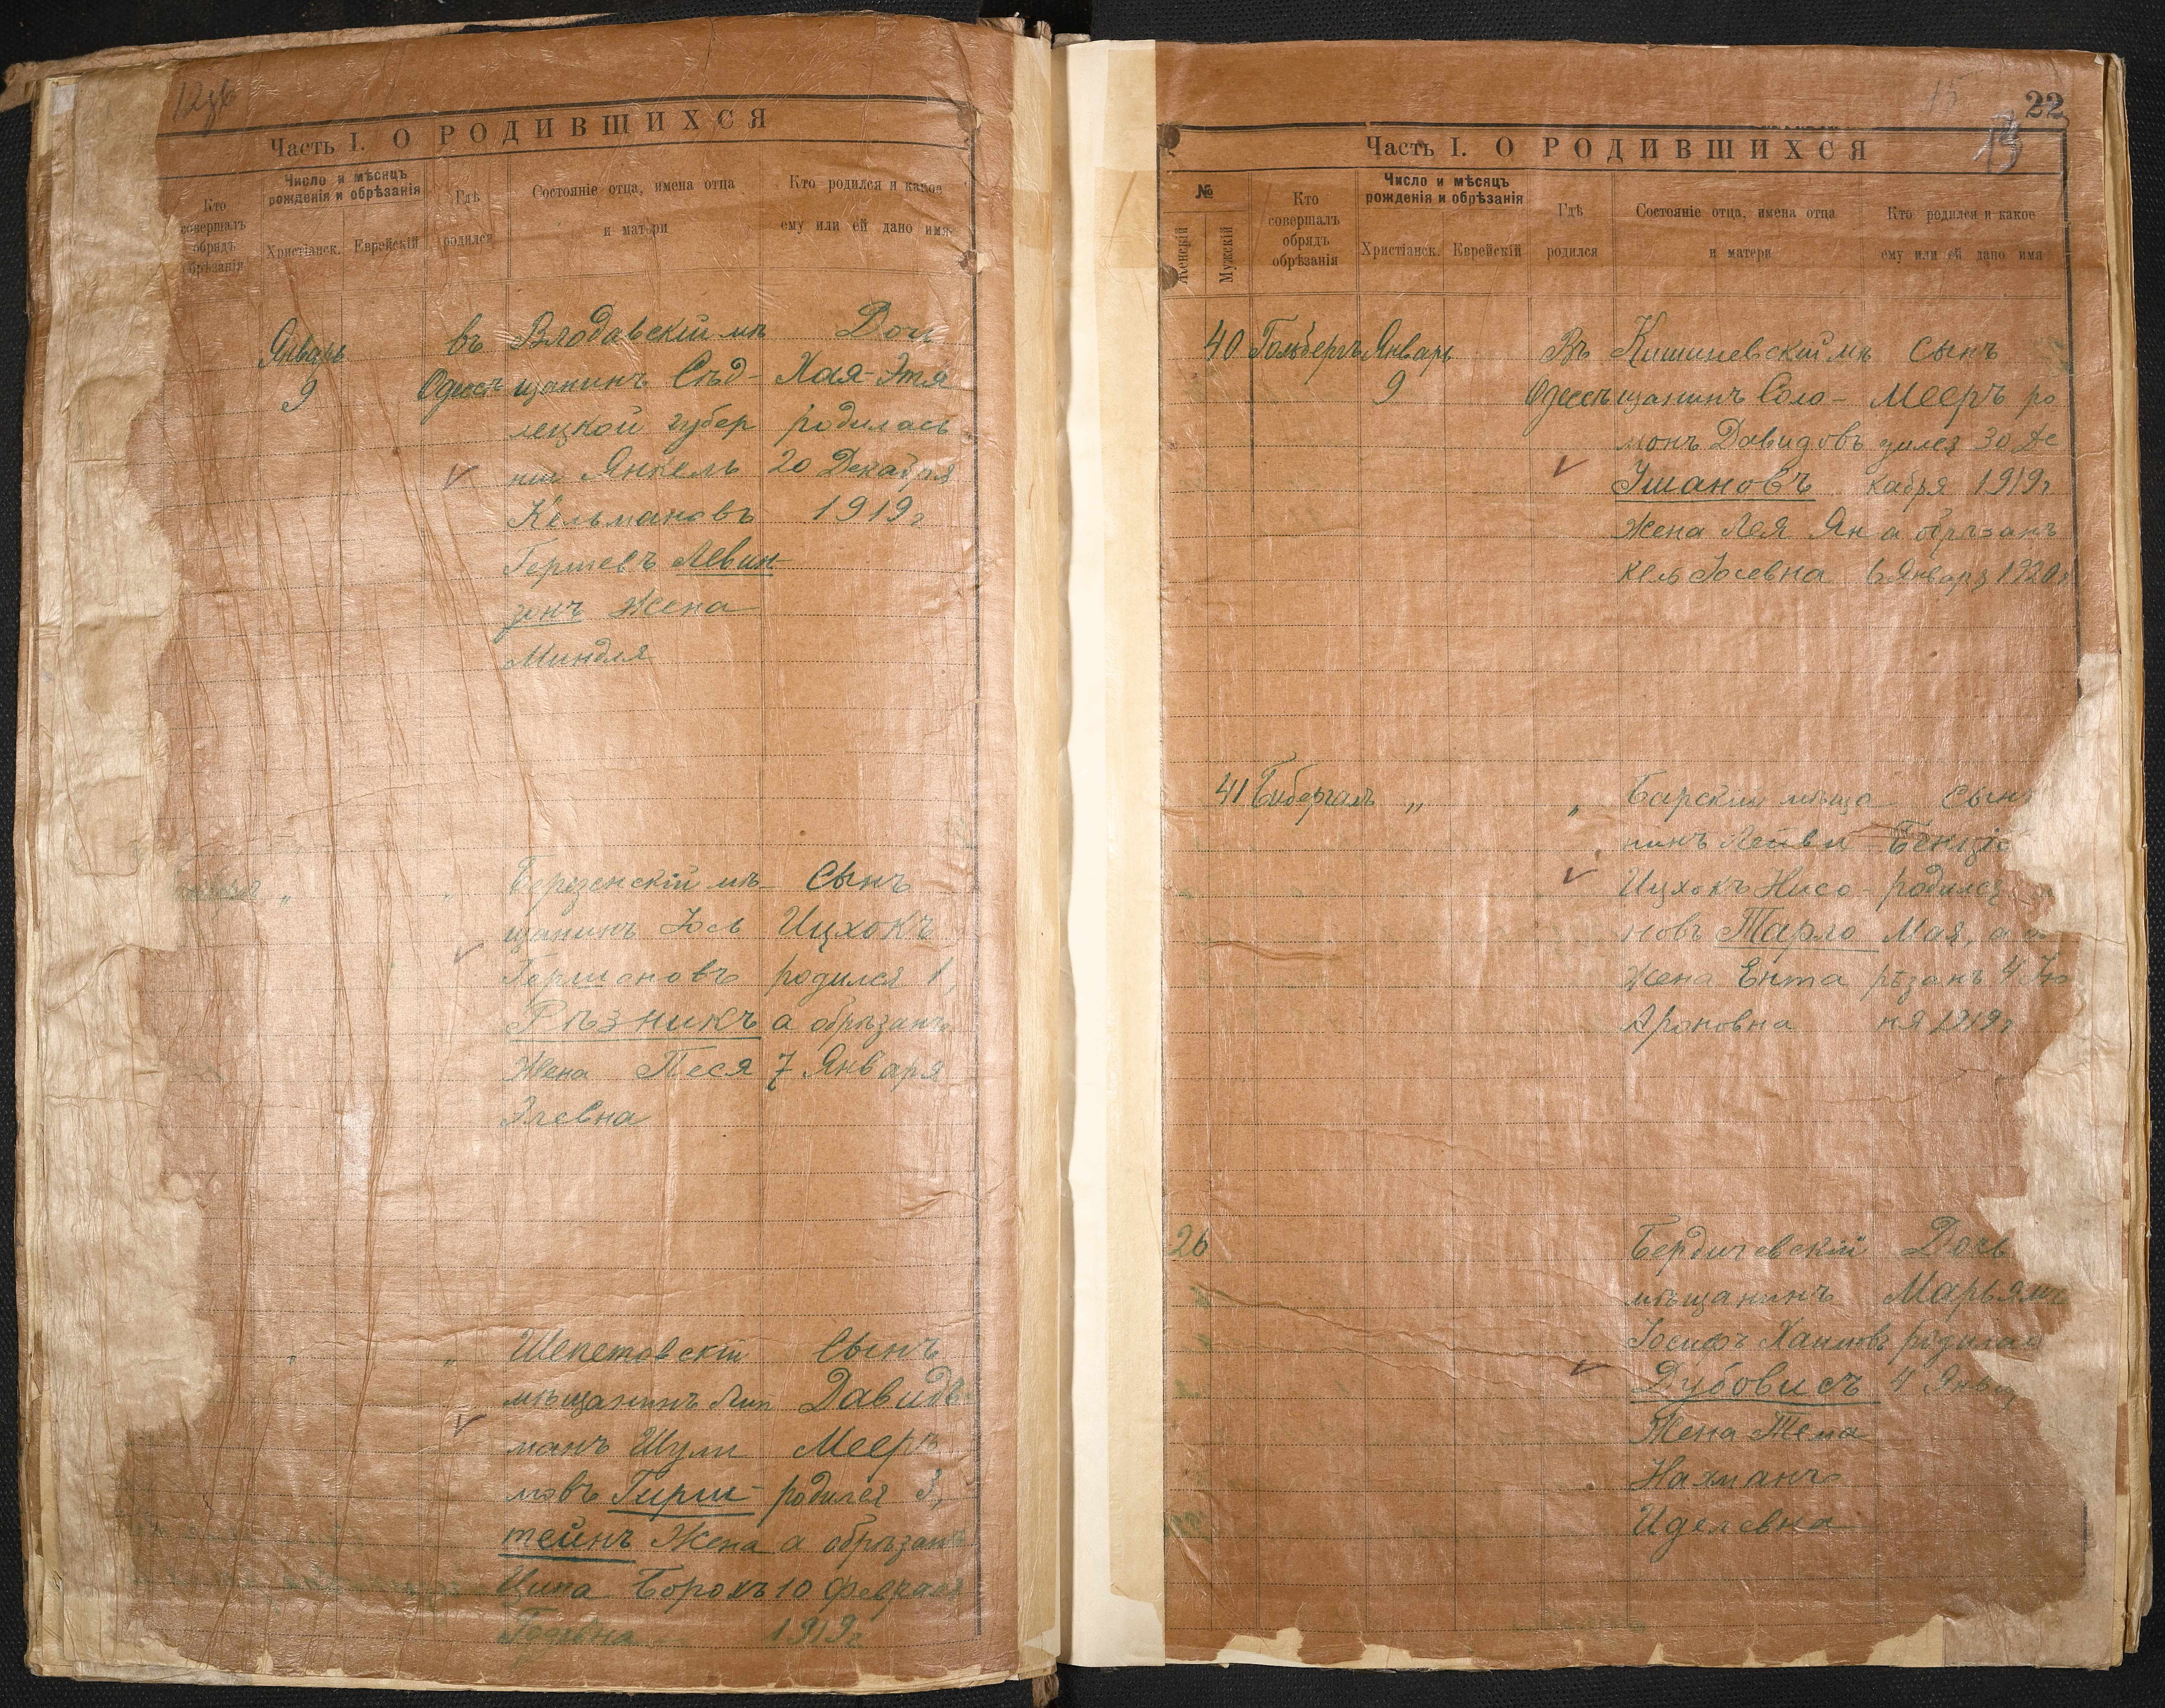 Часть I. О РОДИВШИХСЯ
Кто совершалъ обрядъ обрѣзанія
Число и мѣсяцъ рожденія и обрѣзанія
Христіанск.
Еврейскій
Гдѣ родился
Состояніе отца, имена отца и матери
Кто родился и какое ему или ей дано имя
Январь
9
въ
Одессѣ
Влодавскій мѣ
щанинъ Сѣд-
лецкой губер
ніи Янкель
Кельмановъ
Гершевъ Левин-
Жена
Миндля
Дочь
Хая-Этя
родилась
20 Декабря
1919г
"
"
Березенскій мѣ-
щанинъ Іось
Гершоновъ
Рѣзникъ
Жена Песя
Элевна
Сынъ
Ицхокъ
родился 1,
а обрѣзанъ
7 Января
"
"
Шепетовскій
мѣщанинъ Лип
манъ Шули
мовъ Гирш-
тейнъ Жена
Ципа Борохъ
Сынъ
Давидъ
Мееръ
родился 3,
а обрѣзанъ
10 Февраля
1919г
15
22
13
Часть I. О РОДИВШИХСЯ
№
Женскій
Мужскій
Кто совершалъ обрядъ обрѣзанія
Число и мѣсяцъ рожденія и обрѣзанія
Христіанск.
Еврейскій
Гдѣ родился
Состояніе отца, имена отца и матери
Кто родился и какое ему или ей дано имя
40
Гольбергъ
Январь
9
Въ
Одессѣ
Кишиневскій мѣ
щанинъ Соло-
монъ Давидовъ
Ушановъ
Жена Лея Ян
кель Іосевна
Сынъ
Мееръ ро
дился 30 Де
кабря 1919г
а обрѣзанъ
6 Января 1920г
41
Бибергалъ
"
"
Барскій мѣща
нинъ Лейви
Ицхокъ Нисо-
новъ Тарло
Жена Ента
Ароновна
Сынъ
Бенціо
родился
Мая, а о
рѣзанъ 4 Ію
ня 1919г
26
Бердичевскій
мѣщанинъ
Іосифъ Хаимовъ
Дубовисъ
Жена Тема
Нахманъ
Иделевна
Дочь
Марьямъ
родилась
4 Янв